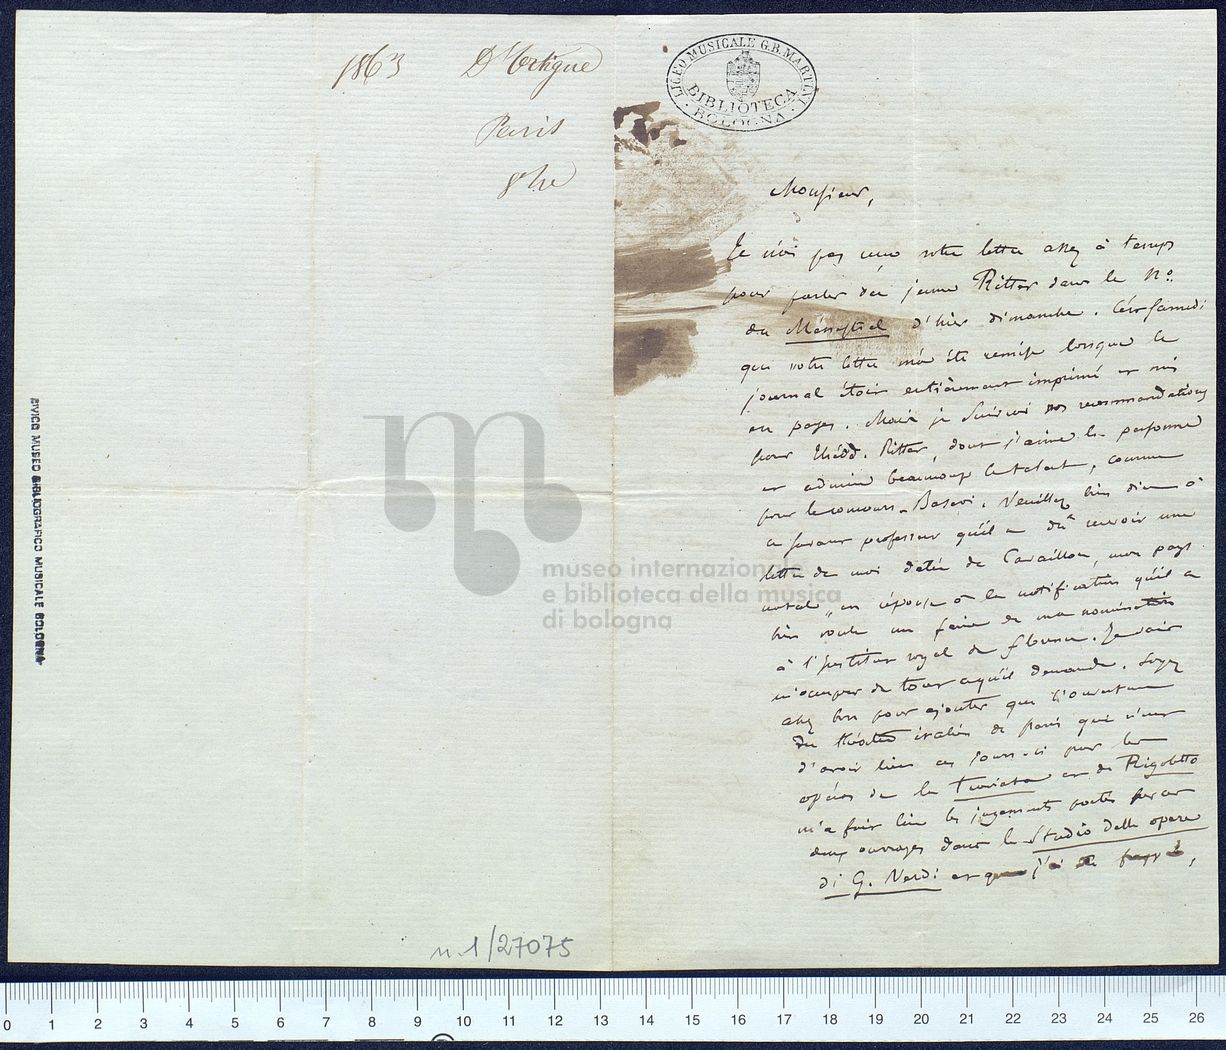 1863 D'Ortigue
Paris
8bre
CIVICO MUSEO BIBLIOGRAFICO MUSICALE BOLOGNA
n.1/27075
LICEO MUSICALE G.B. MARTINI
BIBLIOTECA
BOLOGNA
Monsieur,
Je n'ai pas reçu votre lettre assez à temps
pour parler du jeune Ritter dans le No.
du Ménestrel d'hier dimanche. C'est samedi
que votre lettre m'a été remise lorsque le
journal étoit entièrement imprimé et mis
en pages. Mais je suivrai vos recommandations
pour Théod. Ritter, dont j'aime la personne
et admire beaucoup le talent, comme
pour le concours-Basevi. Veuillez bien dire à
ce savant professeur qu'il a dû recevoir une
lettre de moi datée de Cavaillon, mon pays
natal, en réponse à la notification qu'il a
bien voulu me faire de ma nomination
à l'Institut royal de florence. Je vais
m'occuper de tout ce qu'il demande. Soyez
assez bon pour ajouter que l'ouverture
du théâtre italien de paris qui vient
d'avoir lieu ces jours-ci par les
opéras de la Traviata et de Rigoletto
m'a fait lire les jugements portés sur ces
deux ouvrages dans le Studio delle opere
di G. Verdi et que j'ai été frappé,
museo internazionale
e biblioteca della musica
di bologna
0 1 2 3 4 5 6 7 8 9 10 11 12 13 14 15 16 17 18 19 20 21 22 23 24 25 26